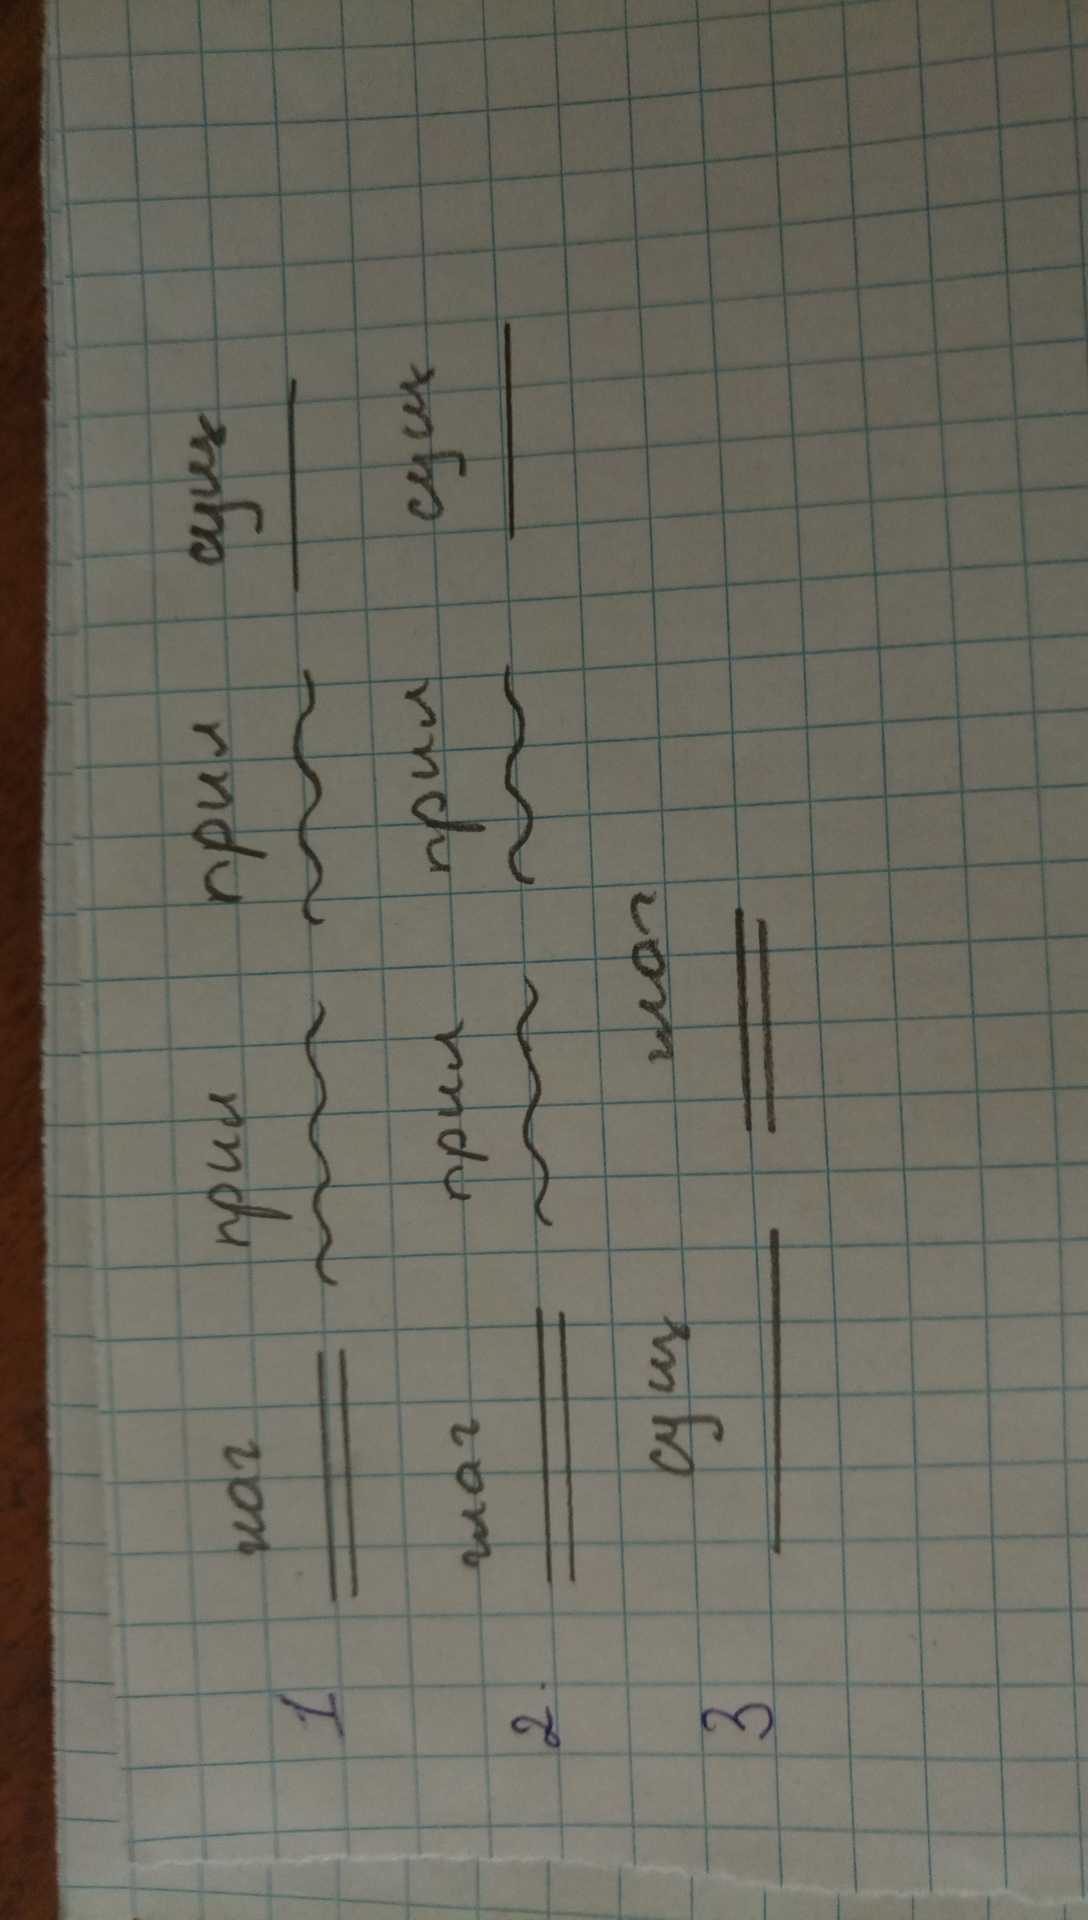 1 глаг прил прил сущ
2. глаг прил прил сущ
3 сущ глаг